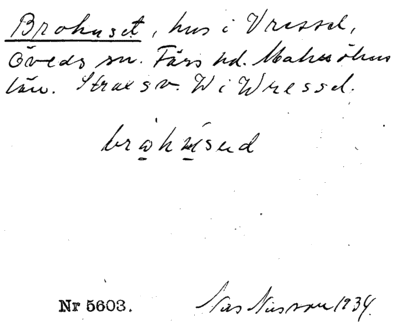 Brohuset, hus i Vressel,
Öveds sn. Färs hd. Malmöhus
län. Strax sv. W i Wressel.
brohused
Nr 5603.
Nils Nilsson 1934.